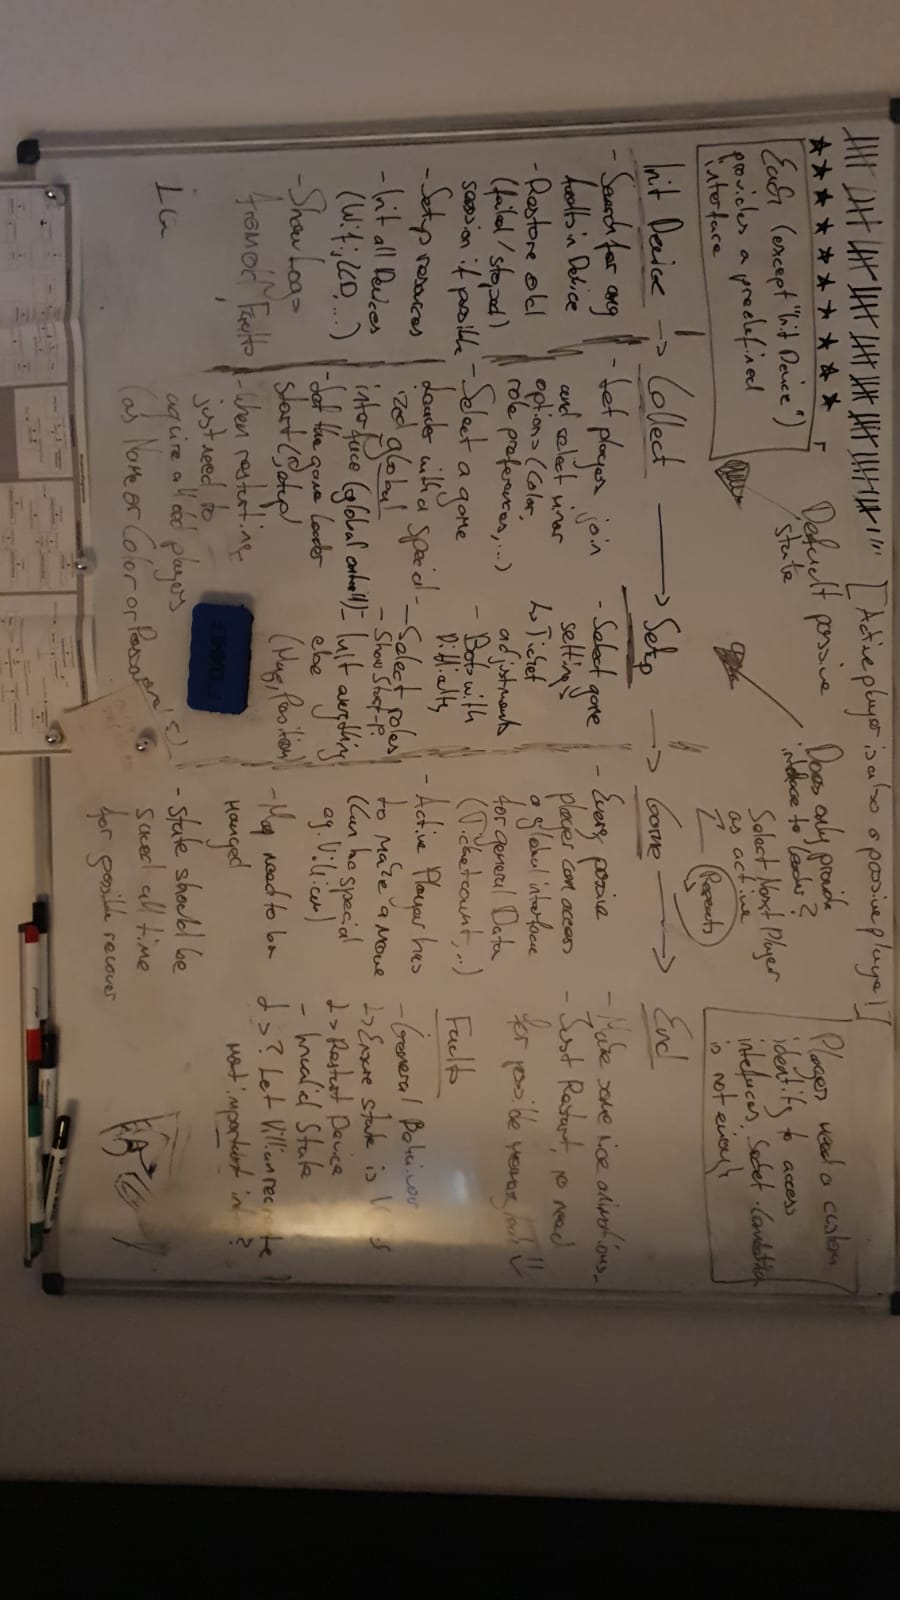 [Active player is also a passive player!]
Each (except "Init Device")
provides a predefined
interface
Default passive
state
Does only provide
interface to leader?
Select Next Player
as active
Repeats
Players need a custom
identity to access
interfaces, Socket-Connection
is not enough
Init Device -> Collect -> Setup -> Game -> End
- Search for any
faults in Device
- Restore old
(failed/stopped)
session if possible
- Setup resources
- Init all Devices
(Wifi, LCD, ...)
- Show Logo
- Let players join
and select minor
options (Color,
role preferences, ...)
- Select a game
Leader with a special-
ized global
interface (global control)
- Let the game leader
start Setup
- When restarting
just need to
acquire all old players
(as Name or Color or
- Select game
settings
↳ Ticket
adjustments
- Bots with
Difficulty
- Select roles
- Show Start-P.
- Init everything
else
(Map, Position)
- Every passive
player can access
a global interface
for general Data
(Ticketcount, ...)
- Active Player has
to make a move
(Can be special
eg. Villian)
- Map need to be
changed
- State should be
saved all time
for possible recover
- Make some nice animations
- Just Restart, no need
for possible
Faults
- General Behaviour
↳ Ensure state is
↳ Restart Device
- Invalid State
↳ ? Let Villian recreate
most important